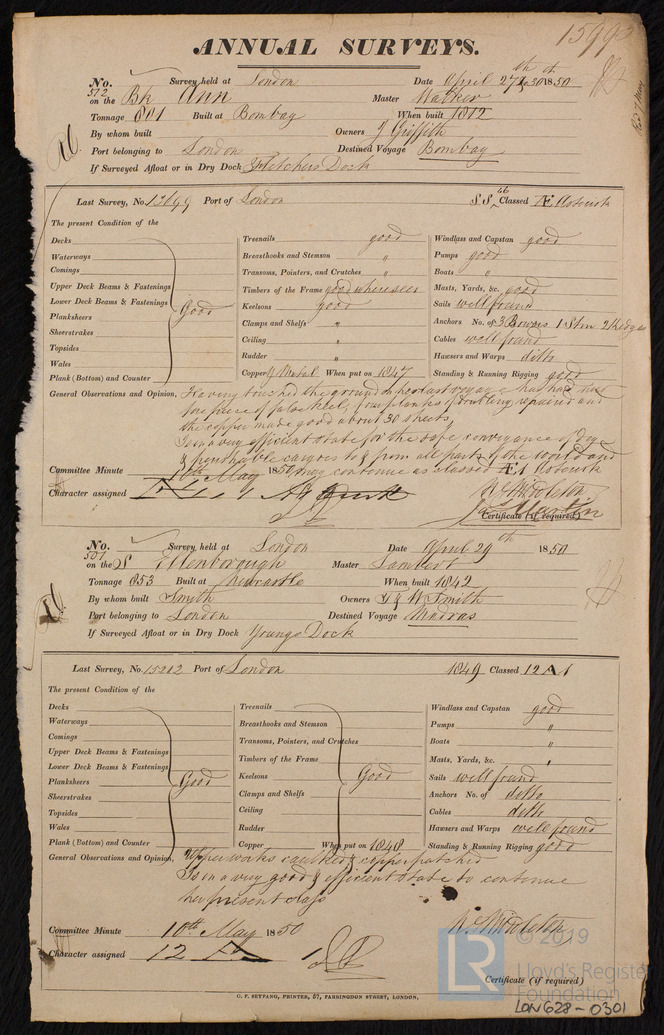 1599
ANNUAL SURVEYS.
No. 512 Survey held at London Date April 27th & 30th 1850
on the Bk Ann Master Walker
Tonnage 801 Built at Bombay When built 1812
By whom built Owners J Griffith
Port belonging to London Destined Voyage Bombay
If Surveyed Afloat or in Dry Dock Fletchers Dock
Last Survey, No. Port of London SS 46 Classed Æ Asterisk
The present Condition of the
Decks
Waterways
Comings
Upper Deck Beams & Fastenings
Lower Deck Beams & Fastenings
Planksheers
Sheerstrakes
Topsides
Wales
Plank (Bottom) and Counter
Good
Treenails good
Breasthooks and Stemson "
Transoms, Pointers, and Crutches "
Timbers of the Frame good where seen
Keelsons good
Clamps and Shelfs "
Ceiling "
Rudder "
Copper Y Metal When put on 1847
Windlass and Capstan good
Pumps good
Boats "
Masts, Yards, &c. good
Sails well found
Anchors No. of 3 Bowers 1 Strm 2 Kedges
Cables well found
Hawsers and Warps ditto
Standing & Running Rigging good
General Observations and Opinion, Having touched the ground on her last voyage has had
fore piece of false keel, planks of doubling repaired and
the copper made good about 30 sheets
Is in a very efficient state for the safe conveyance of dry
& perishable cargoes to & from all parts of the world and
Committee Minute 10th May 1850 may continue as classed Æ1 Asterisk
Character assigned
W Middleton
J Martin
Certificate (if required)
No. 501 Survey held at London Date April 29th 1850
on the S Ellenborough Master Lambert
Tonnage 853 Built at Newcastle When built 1842
By whom built Smith Owners T & W Smith
Port belonging to London Destined Voyage Madras
If Surveyed Afloat or in Dry Dock Youngs Dock
Last Survey, No. 15202 Port of London 1849 Classed 12 A 1
The present Condition of the
Decks
Waterways
Comings
Upper Deck Beams & Fastenings
Lower Deck Beams & Fastenings
Planksheers
Sheerstrakes
Topsides
Wales
Plank (Bottom) and Counter
Good
Treenails
Breasthooks and Stemson
Transoms, Pointers, and Crutches
Timbers of the Frame
Keelsons
Clamps and Shelfs
Ceiling
Rudder
Copper When put on 1848
Good
Windlass and Capstan good
Pumps "
Boats "
Masts, Yards, &c. "
Sails well found
Anchors No. of ditto
Cables ditto
Hawsers and Warps well found
Standing & Running Rigging good
General Observations and Opinion, Upperworks caulked & copper patched
Is in a very good & efficient state to continue
her present class
W Middleton
Committee Minute 10th May 1850
Character assigned 12 A 1
Certificate (if required)
C. F. SEYFANG, PRINTER, 57, FARRINGDON STREET, LONDON.
© 2019
Lloyd's Register
Foundation
LON628-0301